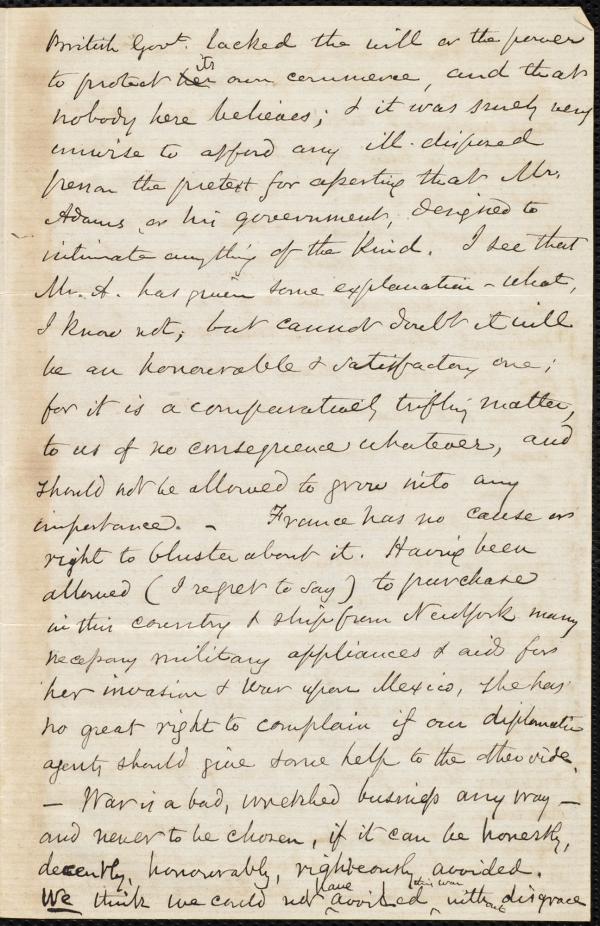 British Govt. lacked the will or the power
to protect her its own commerce, and that
nobody here believes; & it was surely very
unwise to afford any ill-disposed
person the pretext for asserting that Mr.
Adams, or his government, designed to
intimate anything of the kind. I see that
Mr. A. has given some explanation - what,
I know not; but cannot doubt it will
be an honourable & satisfactory one;
for it is a comparatively trifling matter,
to us of no consequence whatever, and
should not be allowed to grow into any
importance. - France has no cause or
right to bluster about it. Having been
allowed (I regret to say) to purchase
in this country & ship from New York many
necessary military appliances & aids for
her invasion & war upon Mexico, she has
no great right to complain if our diplomatic
agents should give some help to the other side.
- War is a bad, wretched business any way -
and never to be chosen, if it can be honestly,
decently, honourably, righteously avoided.
We think we could not have avoided this war without disgrace